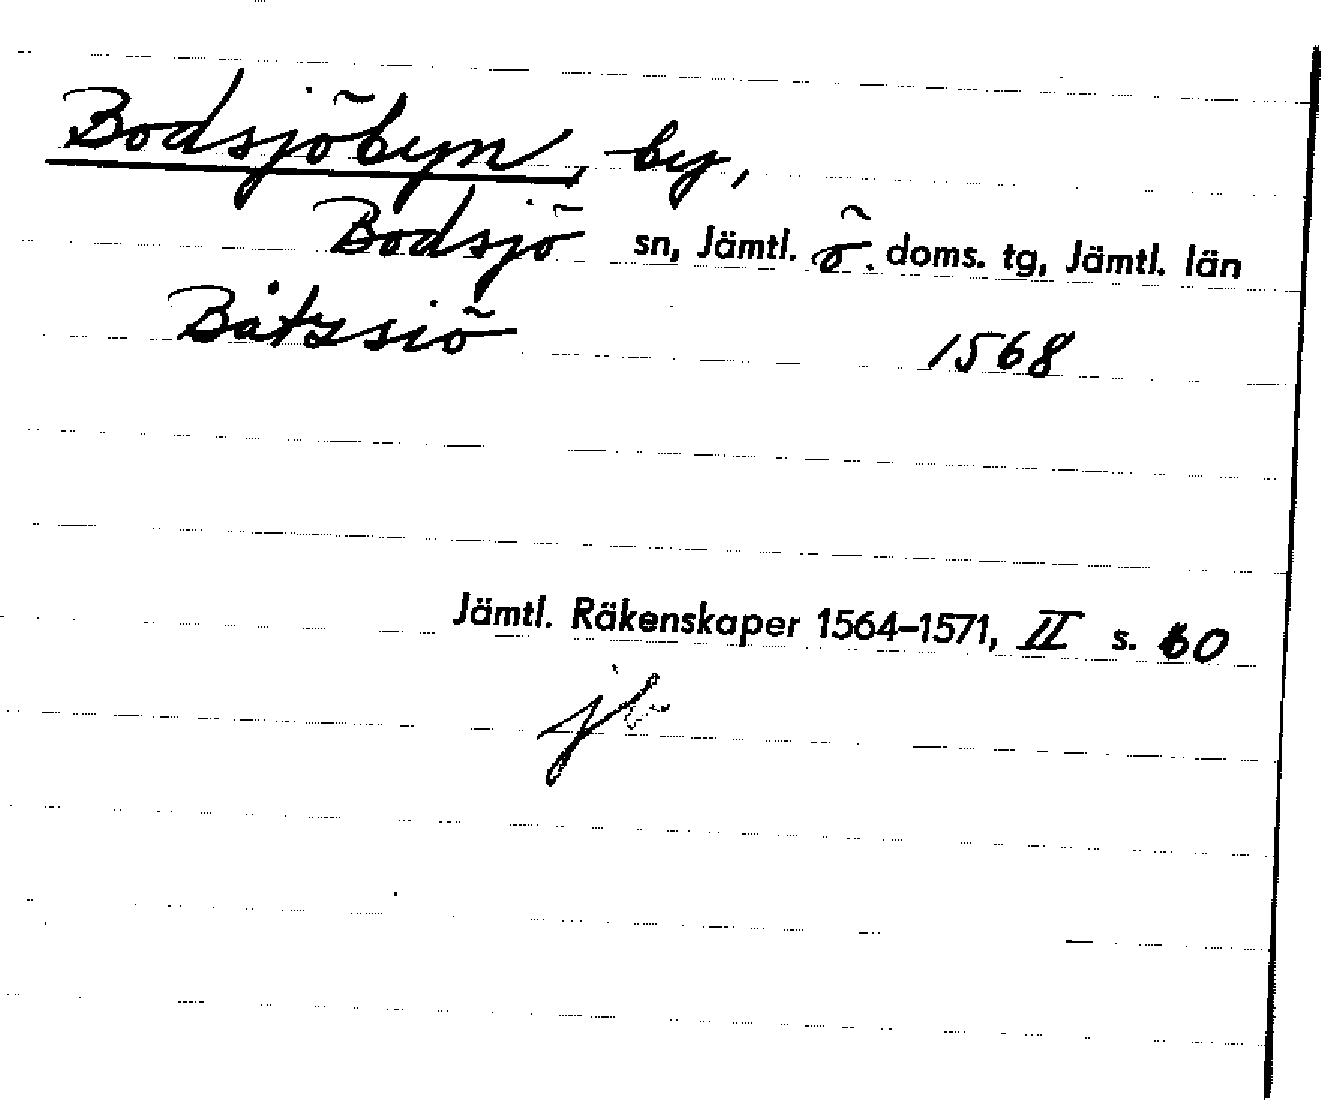 Bodsjöbyn, by,
Bodsjö sn, Jämtl. ö. doms. tg, Jämtl. län
Båtzsiö 1568
Jämtl. Räkenskaper 1564–1571, II s. 60